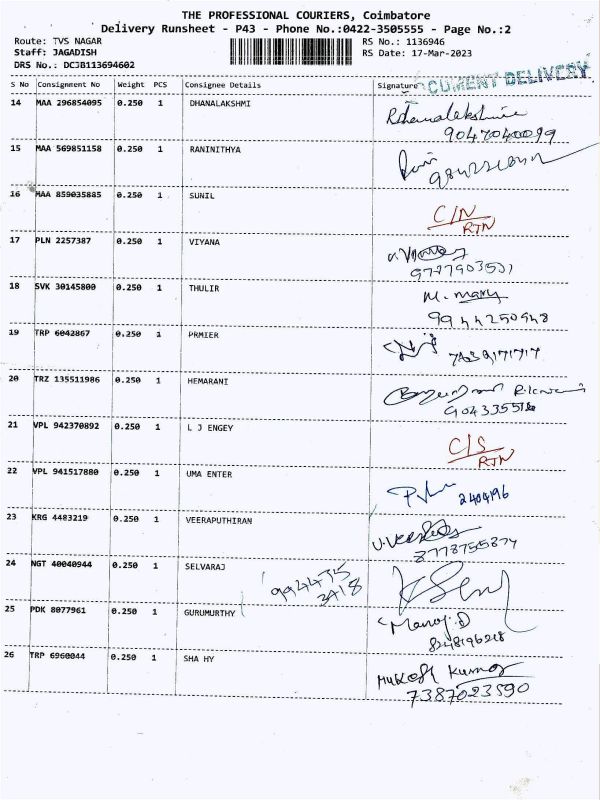 THE PROFESSIONAL COURIERS, Coimbatore
Delivery Runsheet - P43 - Phone No.:0422-3505555 - Page No.:2
Route: TVS NAGAR RS No.: 1136946
Staff: JAGADISH RS Date: 17-Mar-2023
DRS No.: DCJB113694602
S No Consignment No Weight PCS Consignee Details Signature DOCUMENT DELIVERY
14 MAA 296854095 0.250 1 DHANALAKSHMI
9047040099
15 MAA 569851158 0.250 1 RANINITHYA
16 MAA 859035885 0.250 1 SUNIL C/N
RTN
17 PLN 2257387 0.250 1 VIYANA
9777903531
18 SVK 30145800 0.250 1 THULIR M. mary
9944250948
19 TRP 6042867 0.250 1 PRMIER
20 TRZ 135511986 0.250 1 HEMARANI
21 VPL 942370892 0.250 1 L J ENGEY C/S
RTN
22 VPL 941517880 0.250 1 UMA ENTER
2404196
23 KRG 4483219 0.250 1 VEERAPUTHIRAN
8778755874
24 NGT 40040944 0.250 1 SELVARAJ 994435
3418
25 PDK 8077961 0.250 1 GURUMURTHY Manoj.D
8248196218
26 TRP 6960044 0.250 1 SHA HY Mukesh Kumar
7387023590